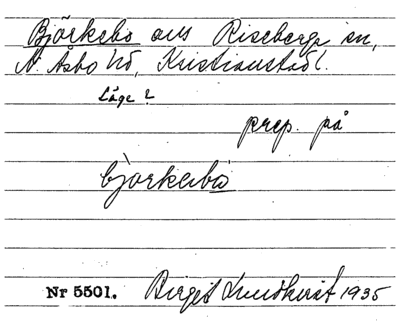 Björkebo aus Riseberga sn,
N. Åsbo hd, Kristianstad l.
Läge ?
prep. på
björkebo
Nr 5501. Birgit Lundkvist 1935